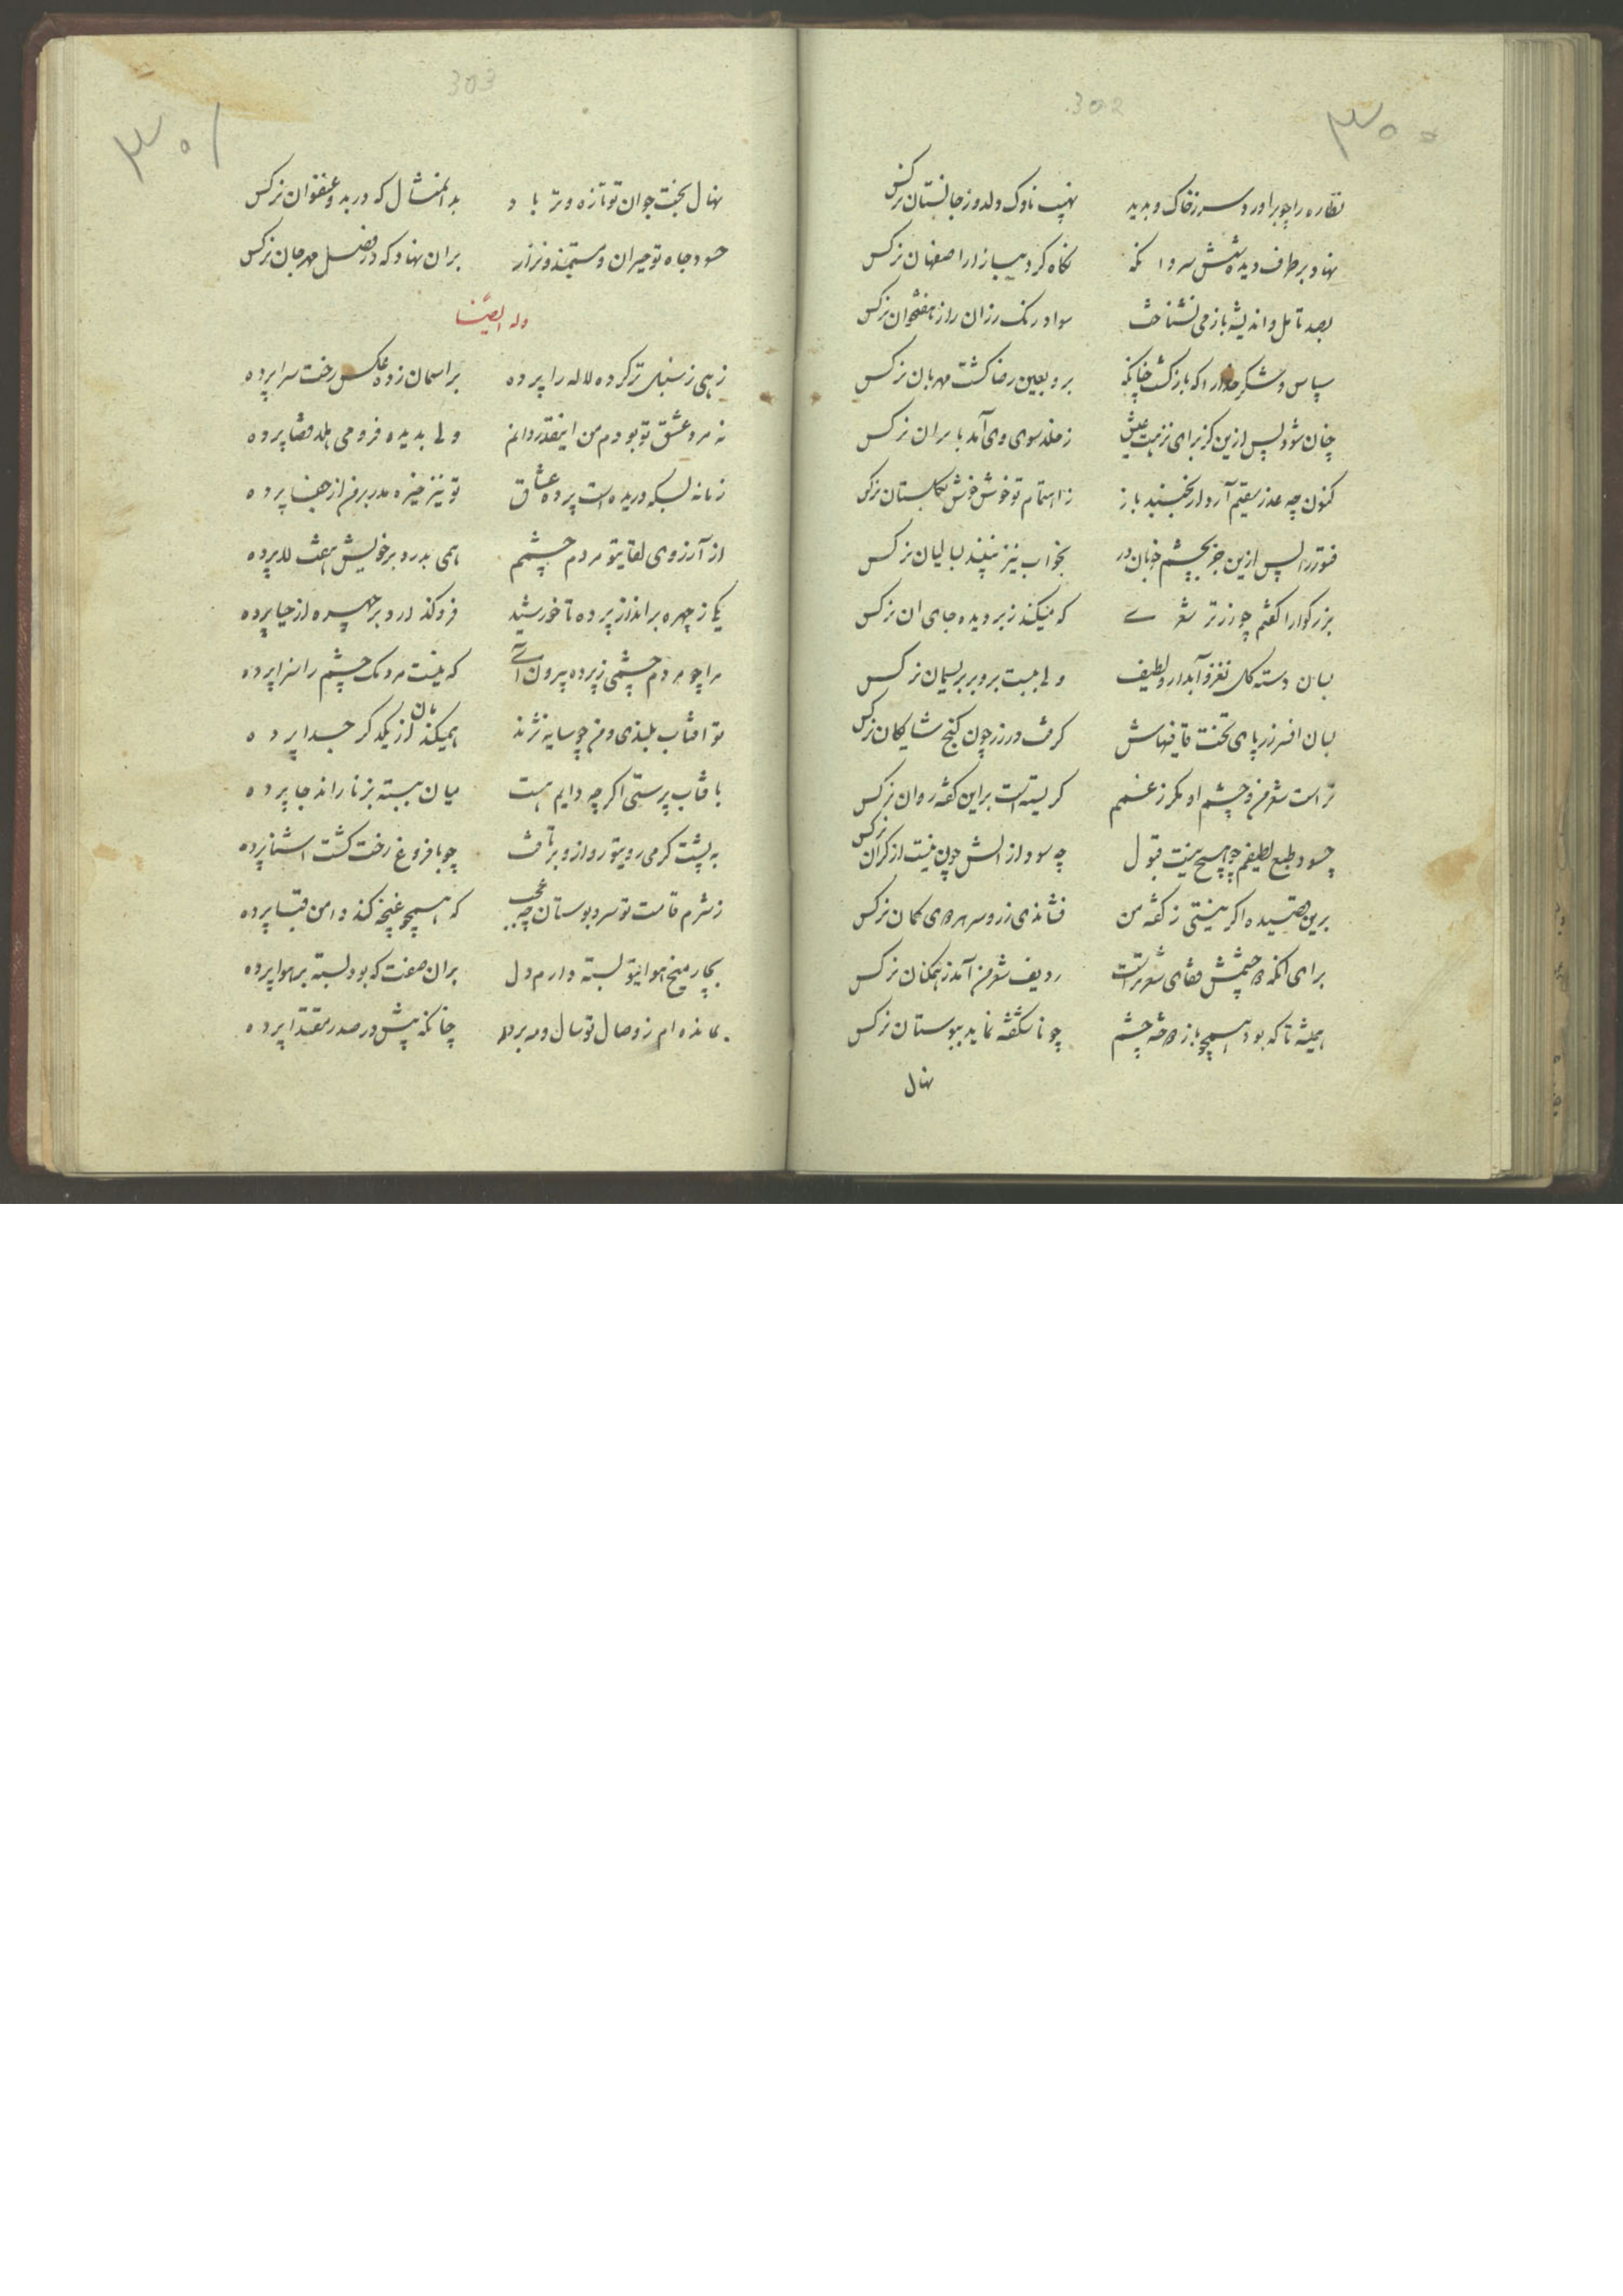 302
۳۰۰
نظاره را چو براورد سر ز خاک و بدید نهیب ناوک دلدوز جانستان نرکس
نهاد بر طرف دیده شش سر و انکه نکاه کرد ببازار اصفهان نرکس
بصد تامل و اندیشه باز می نشناخت سواد رنک رزان را ز هفتخوان نرکس
سپاس و شکر خدا را که بازکشت چنانکه برو بعین رضا کشت مهربان نرکس
چنان شود پس ازین کز برای نزهت عیش ز خلد سوی وی آمد بامران نرکس
کنون چه عذر سقیم آرد ار نجنبد باز ز اهتمام تو خوش خوش بکلستان نرکس
فتور را پس ازین جز بچشم خوبان در بخواب نیز نبیند بسالیان نرکس
بزرکوارا کفتم چو زر تر شعری که میکند زبر دیده جای ان نرکس
بسان دسته کل نغز و آبدار و لطیف ولی ببست برو بر بریسمان نرکس
بسان افسر زر پای تخت قافیهاش کرفت در زر چون کنج شایکان نرکس
تر است شعر من و چشم او مکر ز غمم کریسته است براین کفته روان نرکس
حسود طبع لطیفم چو هیچ نیست قبول چه سود از الش چون نیست از کران نرکس
برین قصیده اکر نیستی ز کفته من فشاندی زر و سر هر دوی کمان نرکس
برای انکه دو چشمش قفای شعر تراست ردیف شعر من آمد ز همکنان نرکس
همیشه تا که بود همچو باز دوخته چشم چو ناشکفته نماید ببوستان نرکس
نهال
303
۳۰۱
نهال بخت جوان تو تازه و تر باد بدانمثال که در بدو عنفوان نرکس
حسود جاه تو حیران و مستمند و نزار بران نهاد که در فصل مهرجان نرکس
وله ایضًا
زهی ز سنبل تر کرده لاله را پرده بر اسمان زده عکس رخت سراپرده
نه مرد عشق تو بودم من اینقدر دانم ولی بدیده فرو می هلد قضا پرده
زمانه بسکه دریده است پرده عشاق تو نیز خیره مدر برمن از جفا پرده
از آرزوی لقای تو مردم چشمم همی بدرد بر خویش هفت لا پرده
یکی ز چهره برانداز پرده تا خورشید فرو کذارد بر چهره از حیا پرده
مرا چو مردم چشمی ز پرده بیرون آی که نیست مردمک چشم را سزا پرده
تو افتاب بلندی و من چو سایه نژند همیکند مان از یکدکر جدا پرده
بافتاب پرستی اکرچه دایم هست میان ببسته بزنار اندجا پرده
به پشت کرمی روی تو رو ازو برتافت چو با فروغ رخت کشت اشنا پرده
ز شرم قامت تو سرو بوستان چه عجب که همچو غنچه کند دامن قبا پرده
بچار میخ هوای تو بسته دارم دل بران صفت که بود بسته بر هوا پرده
بمانده ام ز وصال تو سال و مه بر در چنانکه پیش در صدر مقتدا پرده